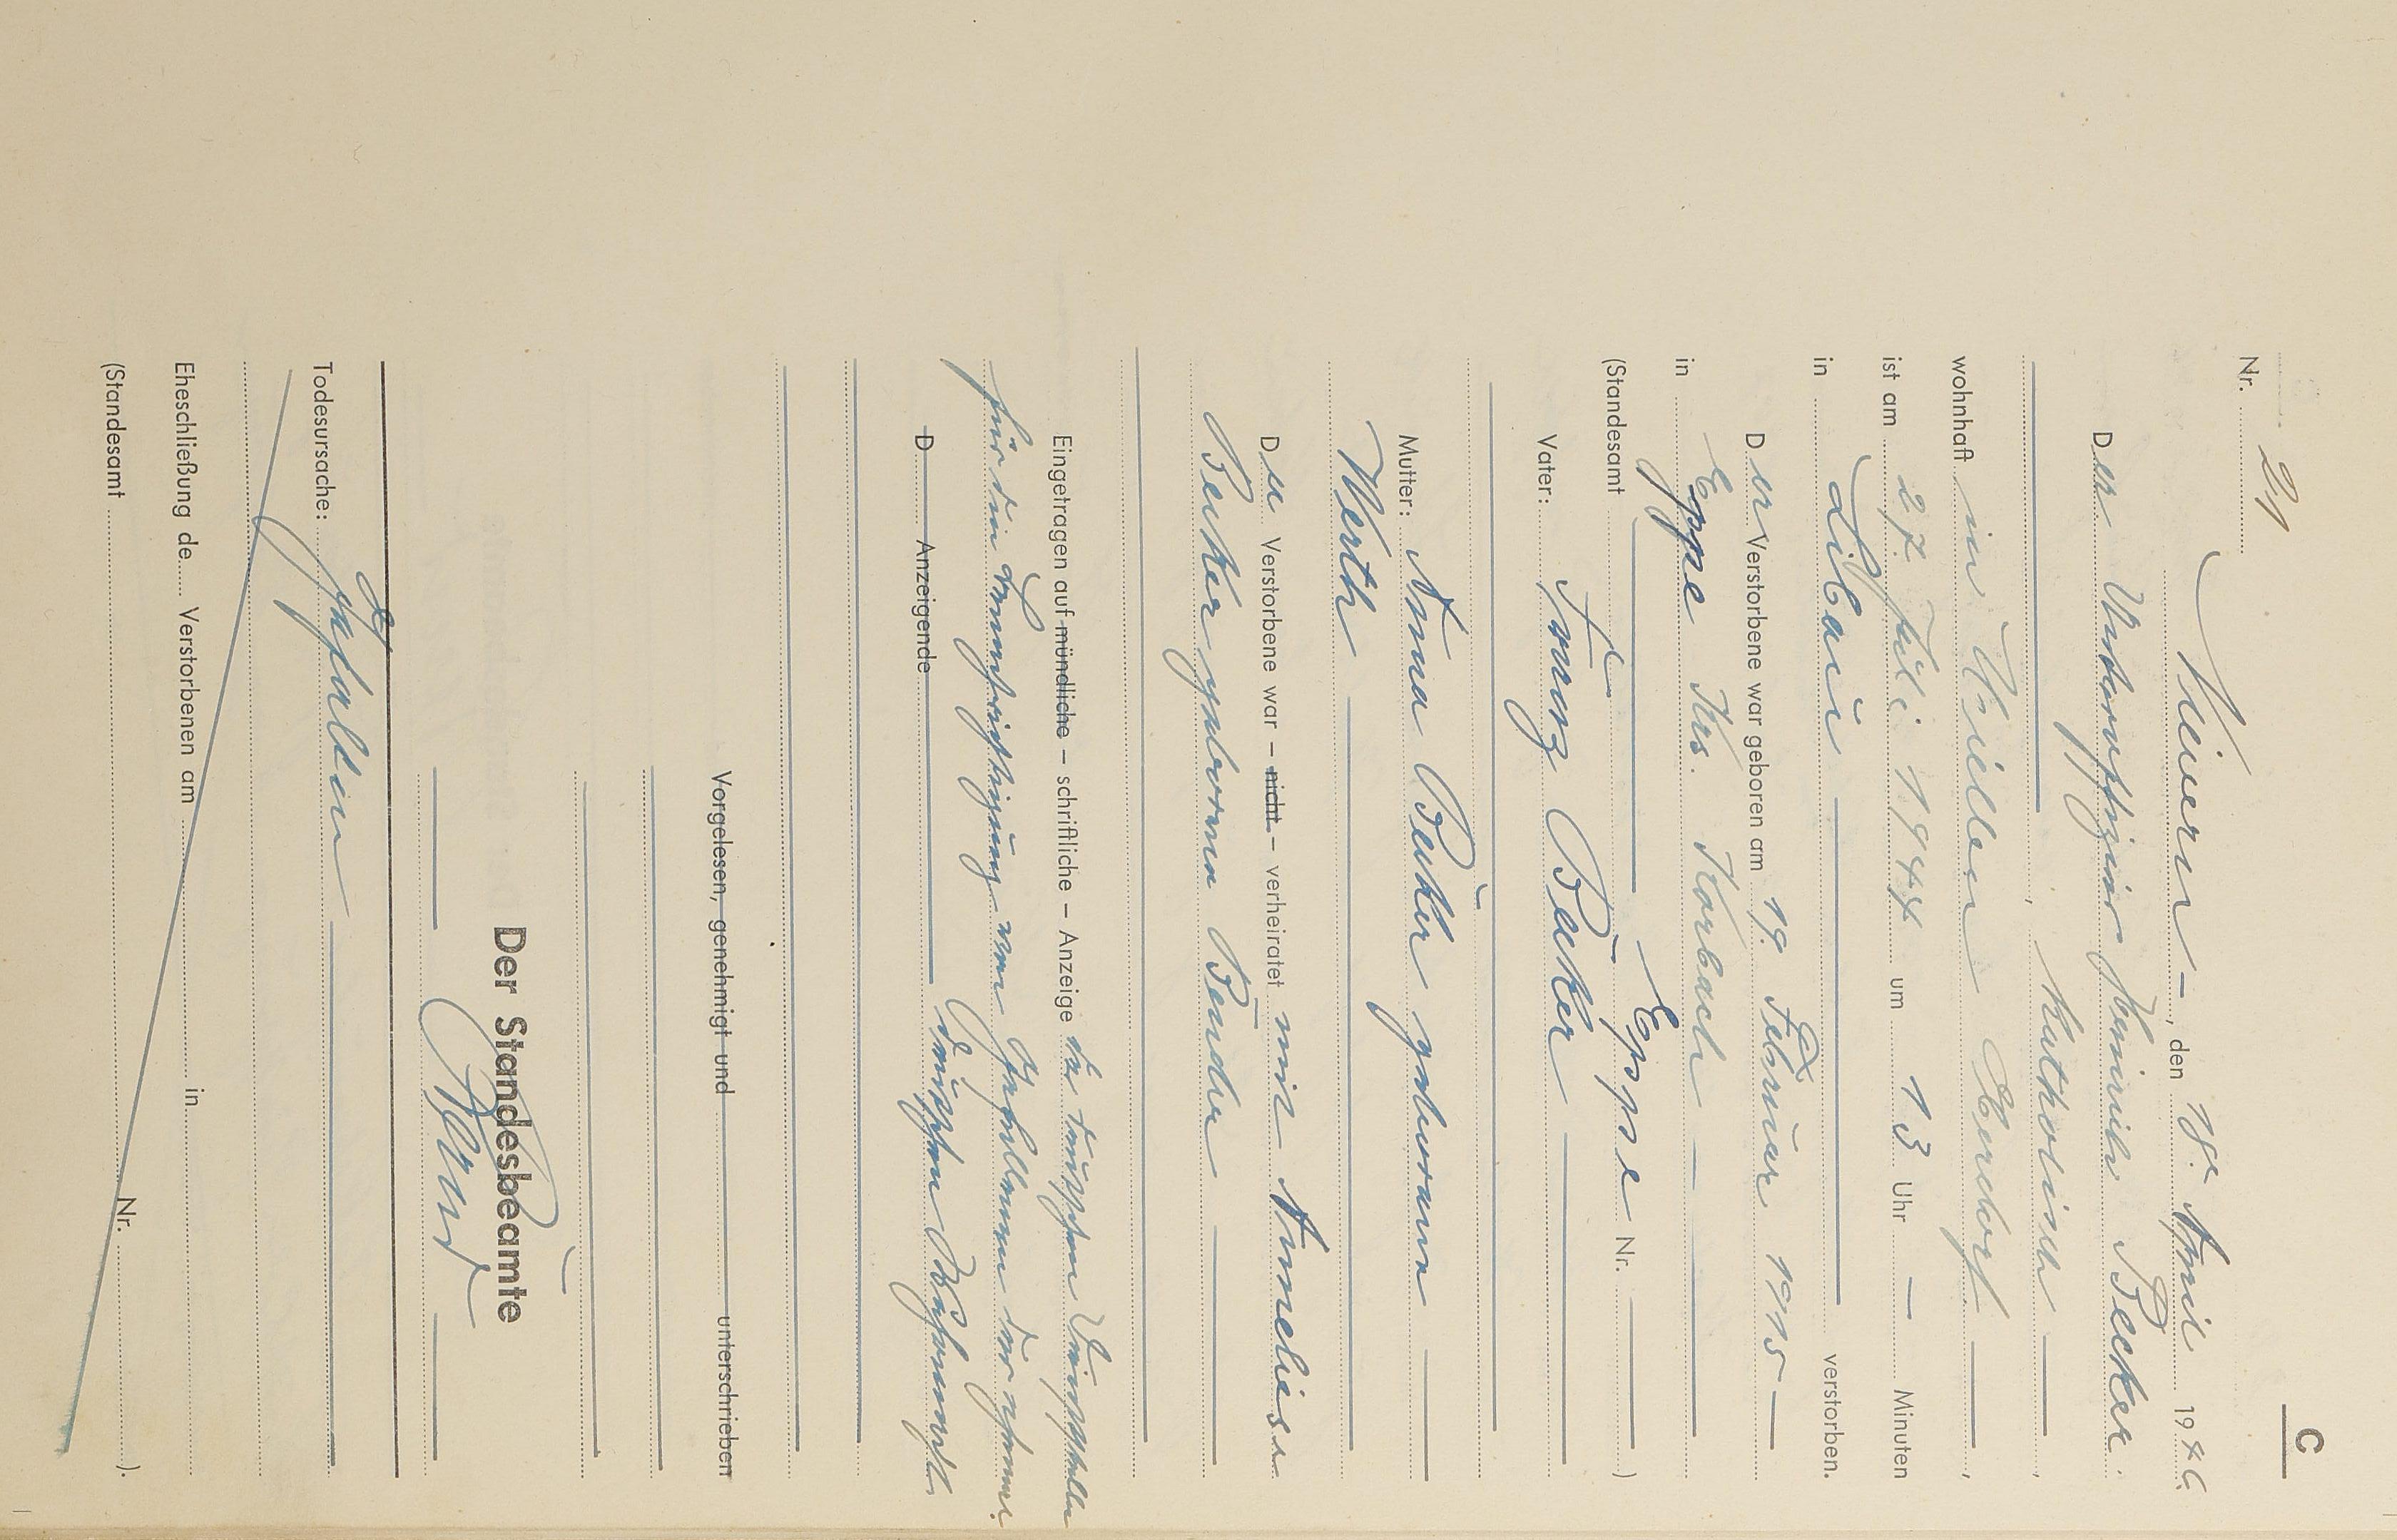 C
Nr. 21
Viermin-, den 18. April 1946.
Der Unteroffizier Heinrich Becker
, katholisch,
wohnhaft in
ist am 27. Juli 1944 um 13 Uhr — Minuten
in Libau verstorben.
Der Verstorbene war geboren am 19. Februar 1915
in Eppe Krs. Korbach
(Standesamt Eppe Nr. )
Vater: Franz Becker
Mutter: Anna Becker geborene
Werth
Der Verstorbene war – nicht – verheiratet mit Anneliese
Becker geborene Bender
Eingetragen auf mündliche – schriftliche – Anzeige der Deutschen Dienststelle
für die Benachrichtigung von Gefallenen der ehema
D Anzeigende ligen deutschen Wehrmacht.
Vorgelesen, genehmigt und unterschrieben
Der Standesbeamte
Todesursache: Gefallen
Eheschließung de Verstorbenen am in
(Standesamt Nr. ).